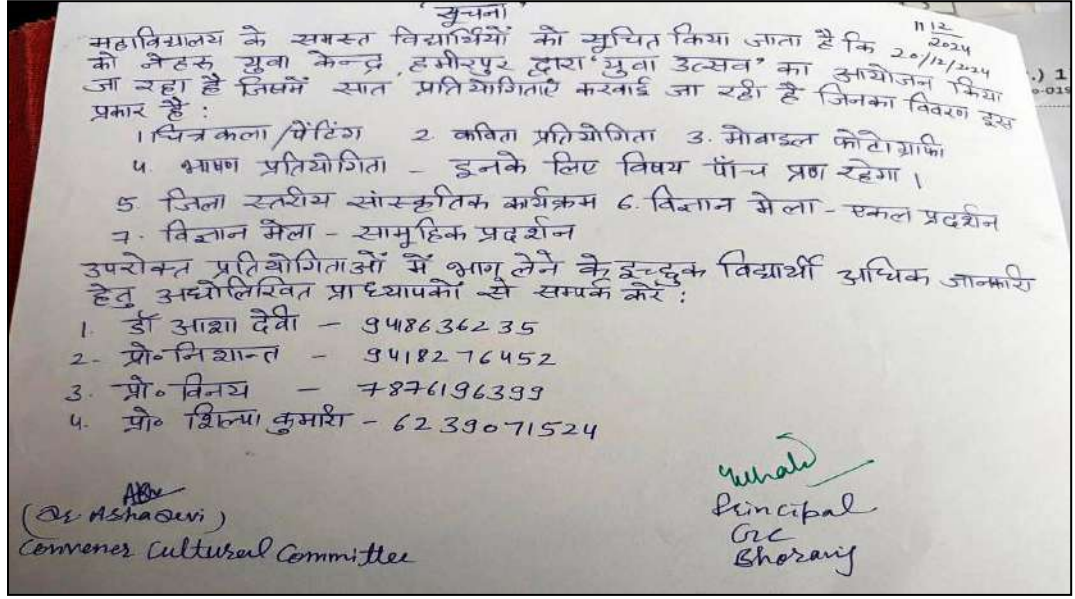 'सूचना'
11/12/2024
महाविद्यालय के समस्त विद्यार्थियों को सूचित किया जाता है कि 20/12/2024
को नेहरू युवा केन्द्र, हमीरपुर द्वारा 'युवा उत्सव' का आयोजन किया
जा रहा है जिसमें सात प्रतियोगिताएँ करवाई जा रही है जिनका विवरण इस
प्रकार है :
1 चित्रकला /पेंटिंग 2 कविता प्रतियोगिता 3. मोबाइल फोटोग्राफी
4. भाषण प्रतियोगिता - इनके लिए विषय पाँच प्रण रहेगा ।
5. जिला स्तरीय सांस्कृतिक कार्यक्रम 6. विज्ञान मेला - एकल प्रदर्शन
7. विज्ञान मेला - सामूहिक प्रदर्शन
उपरोक्त प्रतियोगिताओं में भाग लेने के इच्छुक विद्यार्थी अधिक जानकारी
हेतु अधोलिखित प्राध्यापकों से सम्पर्क करें :
1. डॉ आशा देवी - 948636235
2- प्रो० निशान्त - 9418276452
3. प्रो० विनय - 7876196399
4. प्रो० शिल्पा कुमारी - 6239071524
(Dr Asha Devi)
Convener Cultural Committee
Principal
GC
Bhoranj
.) 1